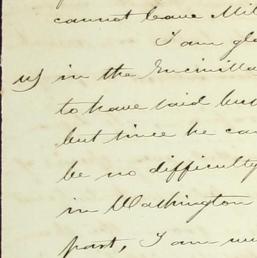 cannot leave Mil
I am gla
us in the Encinilla
to have laid but
but since he can
be no difficulty
in Washington
part, I am